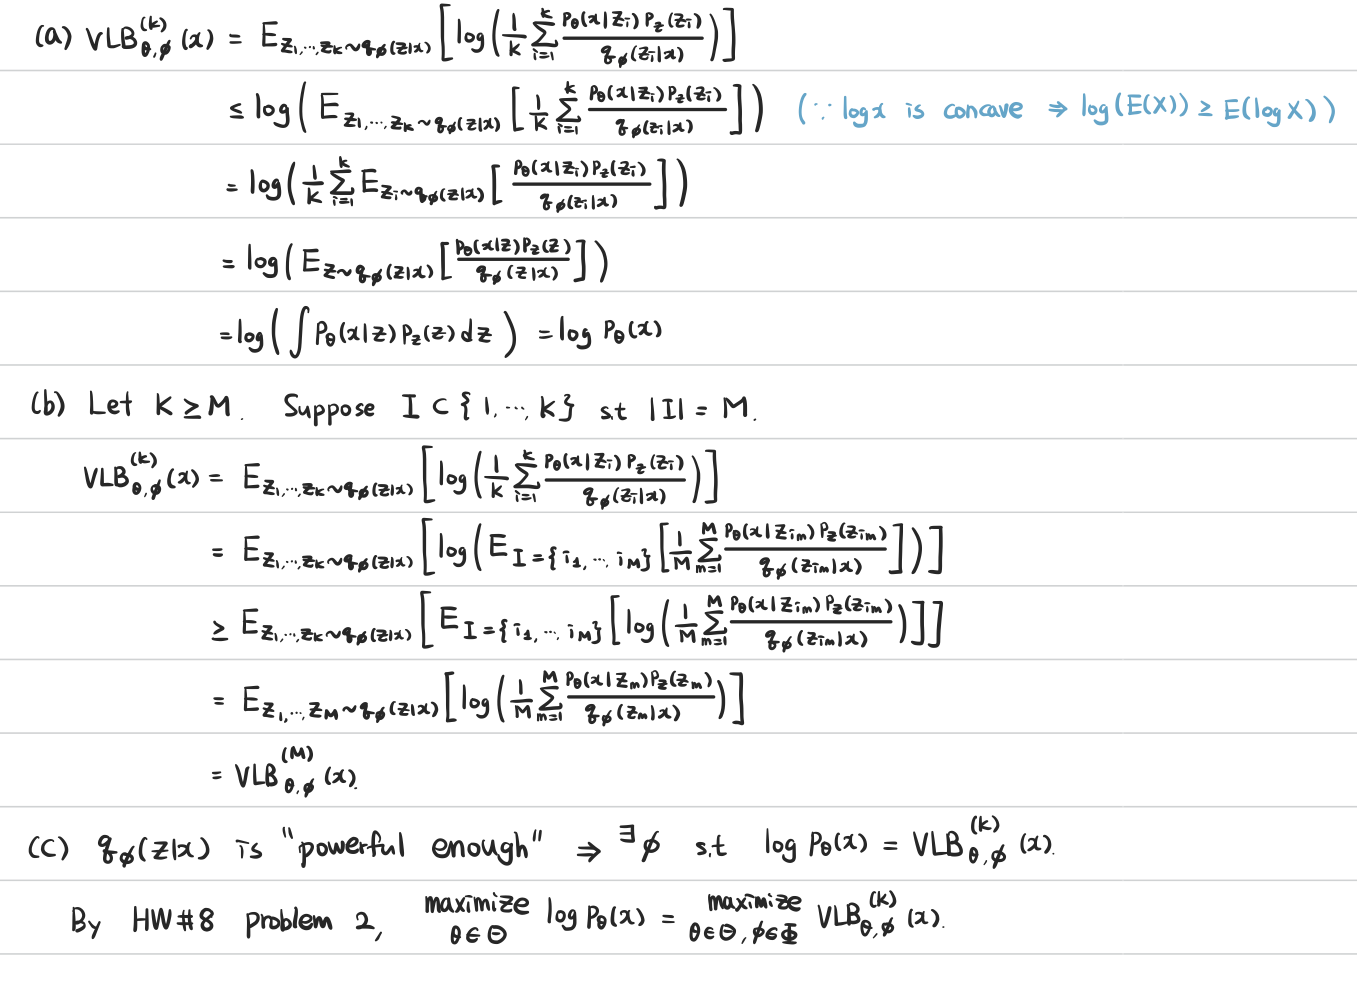 (a) VLB_{θ,φ}^{(k)}(x) = E_{Z_1,…,Z_k∼q_φ(z|x)} [ log( 1/K Σ_{i=1}^{k} p_θ(x|Z_i) p_z(Z_i) / q_φ(Z_i|x) ) ]
≤ log( E_{Z_1,…,Z_k∼q_φ(z|x)} [ 1/K Σ_{i=1}^{k} p_θ(x|Z_i) p_z(Z_i) / q_φ(Z_i|x) ] ) (∵ log x is concave ⇒ log(E(X)) ≥ E(log X))
= log( 1/K Σ_{i=1}^{k} E_{Z_i∼q_φ(z|x)} [ p_θ(x|Z_i) p_z(Z_i) / q_φ(Z_i|x) ] )
= log( E_{Z∼q_φ(z|x)} [ p_θ(x|Z) p_z(Z) / q_φ(Z|x) ] )
= log( ∫ p_θ(x|z) p_z(z) dz ) = log p_θ(x)
(b) Let K ≥ M. Suppose I ⊂ {1,…,K} s.t |I| = M.
VLB_{θ,φ}^{(k)}(x) = E_{Z_1,…,Z_k∼q_φ(z|x)} [ log( 1/K Σ_{i=1}^{k} p_θ(x|Z_i) p_z(Z_i) / q_φ(Z_i|x) ) ]
= E_{Z_1,…,Z_k∼q_φ(z|x)} [ log( E_{I={i_1,…,i_M}} [ 1/M Σ_{m=1}^{M} p_θ(x|Z_{im}) p_z(Z_{im}) / q_φ(Z_{im}|x) ] ) ]
≥ E_{Z_1,…,Z_k∼q_φ(z|x)} [ E_{I={i_1,…,i_M}} [ log( 1/M Σ_{m=1}^{M} p_θ(x|Z_{im}) p_z(Z_{im}) / q_φ(Z_{im}|x) ) ] ]
= E_{Z_1,…,Z_M∼q_φ(z|x)} [ log( 1/M Σ_{m=1}^{M} p_θ(x|Z_m) p_z(Z_m) / q_φ(Z_m|x) ) ]
= VLB_{θ,φ}^{(M)}(x).
(C) q_φ(z|x) is "powerful enough" ⇒ ∃φ s.t log p_θ(x) = VLB_{θ,φ}^{(k)}(x).
By HW#8 problem 2, maximize_{θ∈Θ} log p_θ(x) = maximize_{θ∈Θ, φ∈Φ} VLB_{θ,φ}^{(k)}(x).